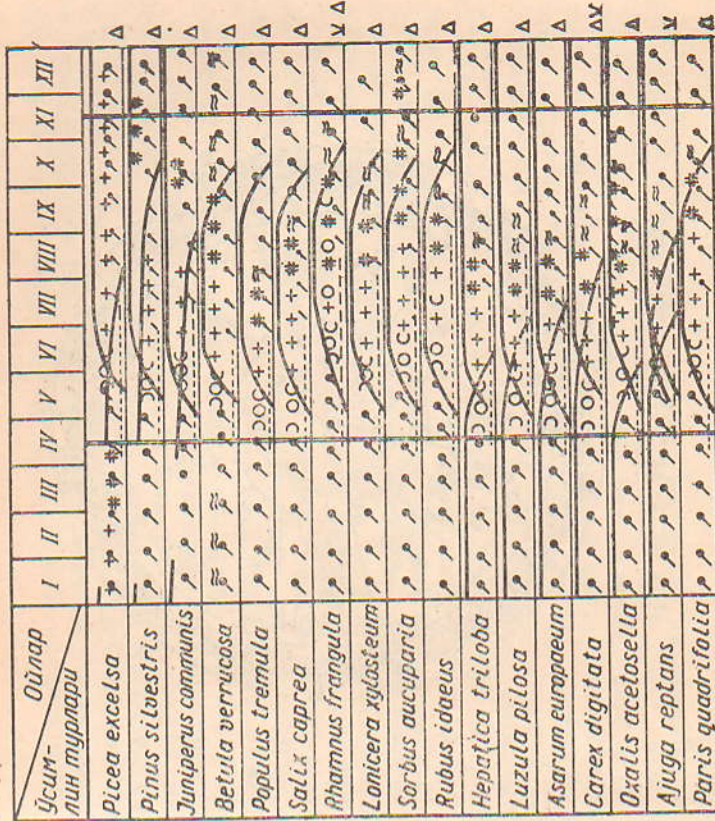 Ойлар
Ўсим-
лик турлари
I II III IV V VI VII VIII IX X XI XII
Picea excelsa
Pinus silvestris
Juniperus communis
Betula verrucosa
Populus tremula
Salix caprea
Rhamnus frangula
Lonicera xylosteum
Sorbus aucuparia
Rubus idaeus
Hepatica triloba
Luzula pilosa
Asarum europaeum
Carex digitata
Oxalis acetosella
Ajuga reptans
Paris quadrifolia